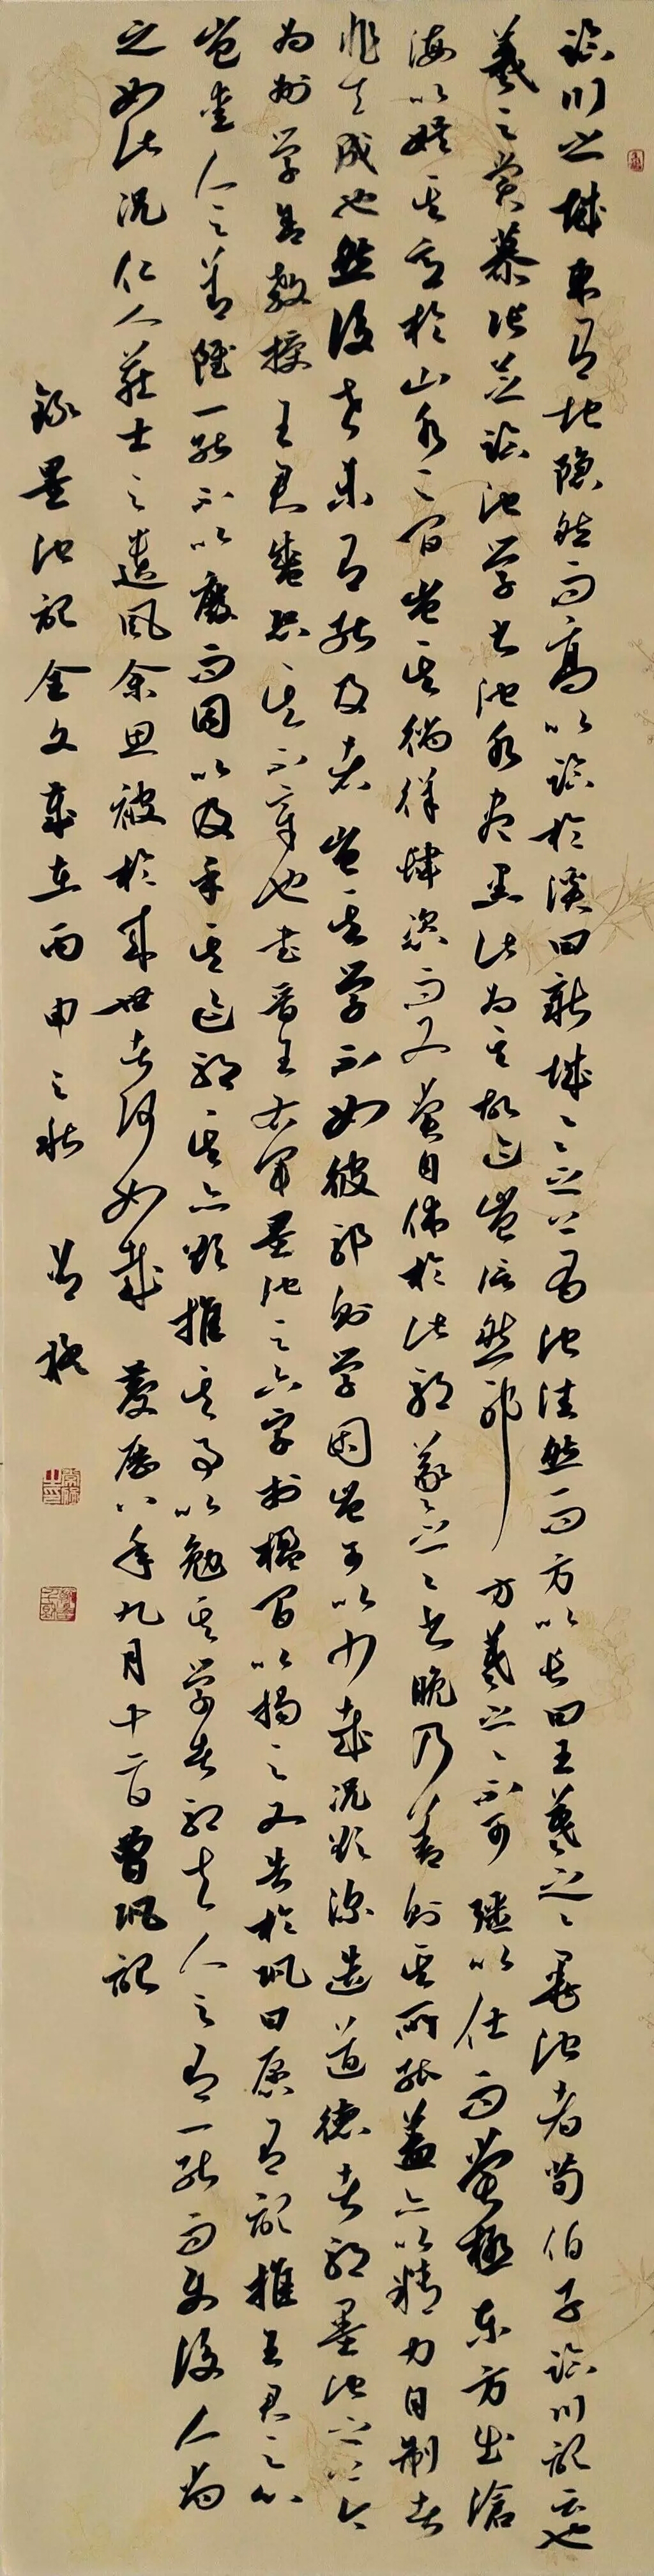 臨川之城東有地隱然而高以臨於溪曰新城〻之上有池洼然而方以長曰王羲之〻墨池者荀伯子臨川記云也
羲之嘗慕張芝臨池學書池水盡黑此為其故迹豈信然邪 方羲之〻不可彊以仕而嘗極東方出滄
海以娛其意於山水之間豈其徜徉肆恣而又嘗自休於此邪羲之〻書晚乃善則其所能蓋亦以精力自致者
非天成也然後世未有能及者豈其學不如彼邪則學固豈可以少哉況欲深造道德者邪墨池之上今
為州學舍教授王君盛恐其不章也書晉王右軍墨池之六字於楹間以揭之又告於鞏曰願有記推王君之心
豈愛人之善雖一能不以廢而因以及乎其迹邪其亦欲推其事以勉其學者邪夫人之有一能而使後人尚
之如此況仁人莊士之遺風余思被於來世者何如哉 慶曆八年九月十二日曾鞏記
錄墨池記全文歲在丙申之秋